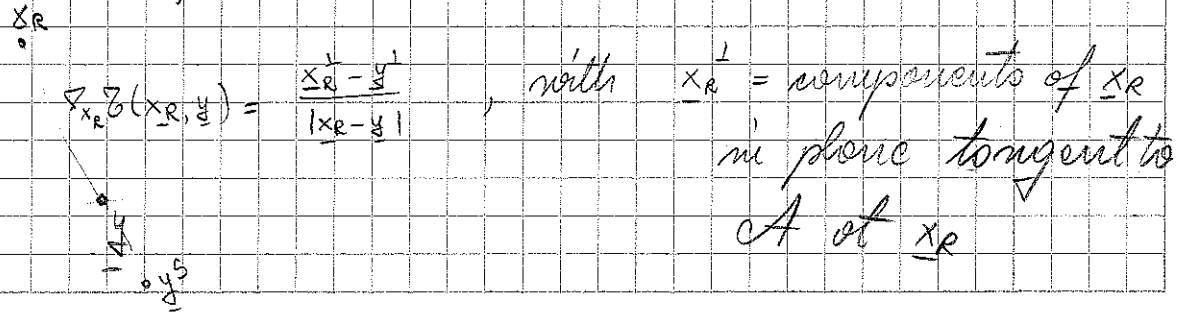 x_R
∇_{x_R} τ(x_R, y) = (x_R^⊥ - y^⊥) / |x_R - y| , with x_R^⊥ = components of x_R
in plane tangent to
A at x_R
y
y^s